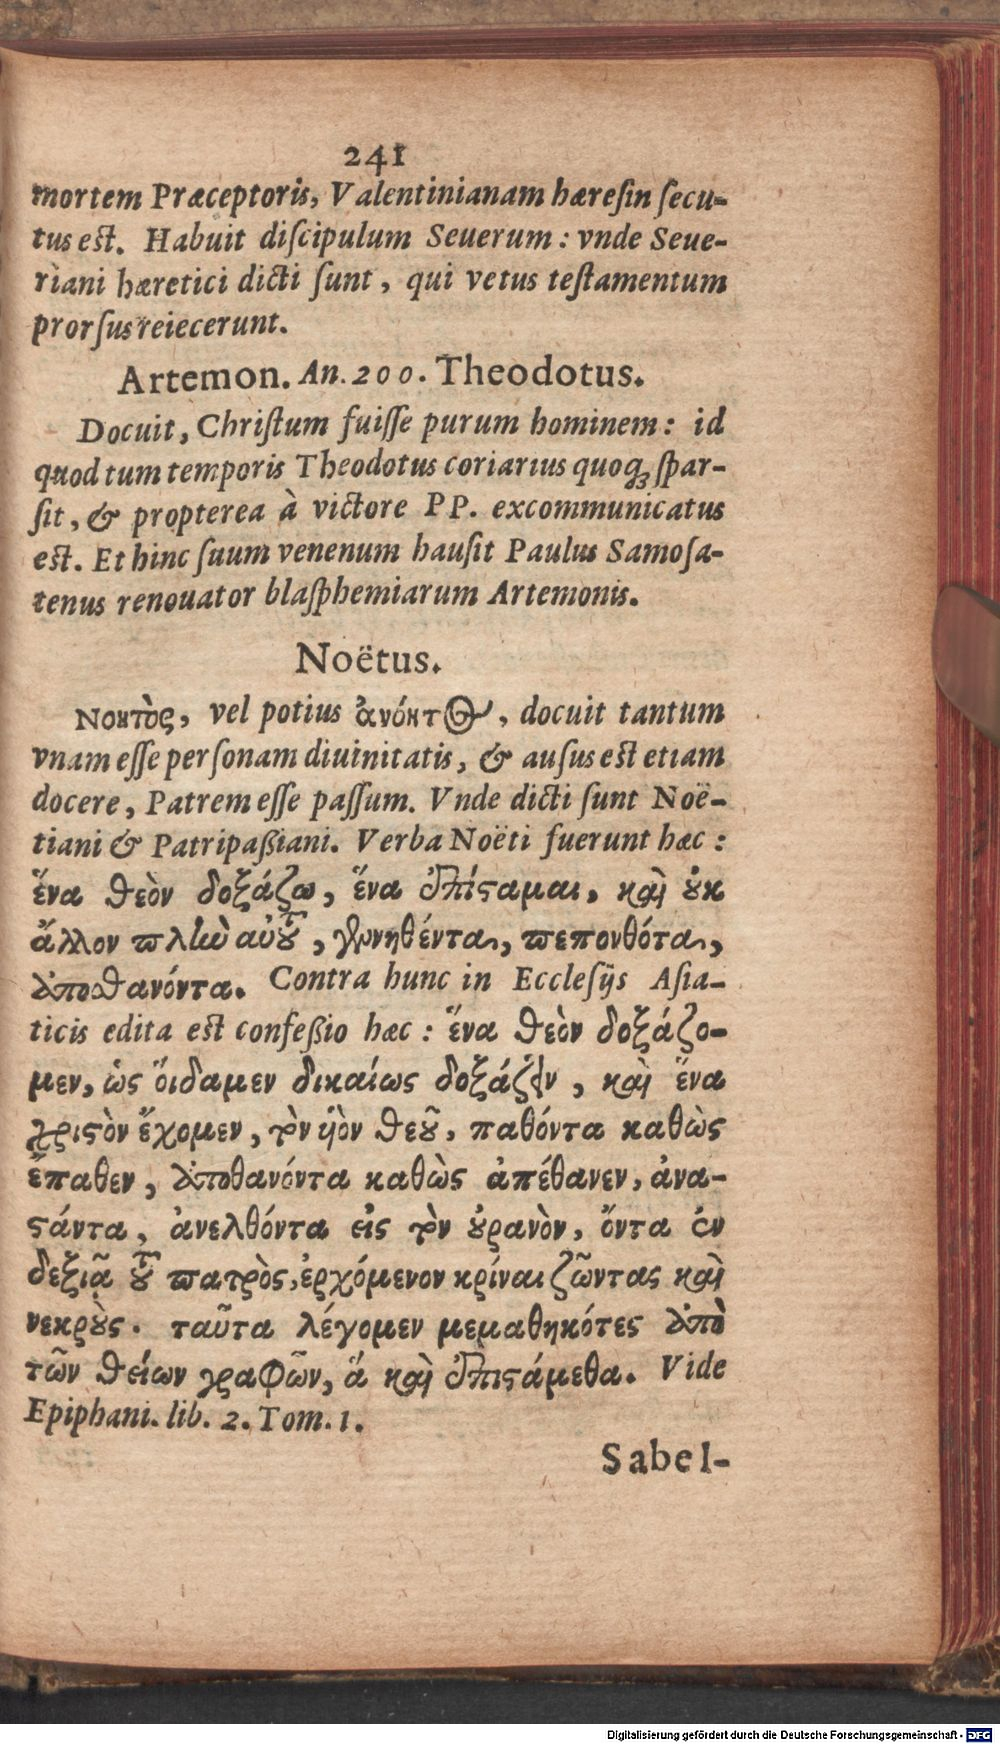 241
mortem Præceptoris, Valentinianam hæresin secu-
tus est. Habuit discipulum Seuerum: vnde Seue-
riani hæretici dicti sunt, qui vetus testamentum
prorsus reiecerunt.
Artemon. An. 200. Theodotus.
Docuit, Christum fuisse purum hominem: id
quod tum temporis Theodotus coriarius quoq; spar-
sit, & propterea à victore PP. excommunicatus
est. Et hinc suum venenum hausit Paulus Samosa-
tenus renouator blasphemiarum Artemonis.
Noëtus.
Νοητὸς, vel potius ἀνόητος, docuit tantum
vnam esse personam diuinitatis, & ausus est etiam
docere, Patrem esse passum. Vnde dicti sunt Noë-
tiani & Patripaßiani. Verba Noëti fuerunt hæc:
ἕνα θεὸν δοξάζω, ἕνα ἐπίσταμαι, καὶ οὐκ
ἄλλον πλὴν αὐτοῦ, γεννηθέντα, πεπονθότα,
ἀποθανόντα. Contra hunc in Ecclesijs Asia-
ticis edita est confeßio hæc: ἕνα θεὸν δοξάζο-
μεν, ὡς οἴδαμεν δικαίως δοξάζειν, καὶ ἕνα
χριστὸν ἔχομεν, τὸν ὑὸν θεοῦ, παθόντα καθὼς
ἔπαθεν, ἀποθανόντα καθὼς ἀπέθανεν, ἀνα-
στάντα, ἀνελθόντα εἰς τὸν οὐρανὸν, ὄντα ἐν
δεξιᾷ τοῦ πατρὸς, ἐρχόμενον κρίναι ζῶντας καὶ
νεκροὺς. ταῦτα λέγομεν μεμαθηκότες ἀπὸ
τῶν θείων γραφῶν, ἅ καὶ ἐπιστάμεθα. Vide
Epiphani. lib. 2. Tom. 1.
Sabel-
Digitalisierung gefördert durch die Deutsche Forschungsgemeinschaft - DFG